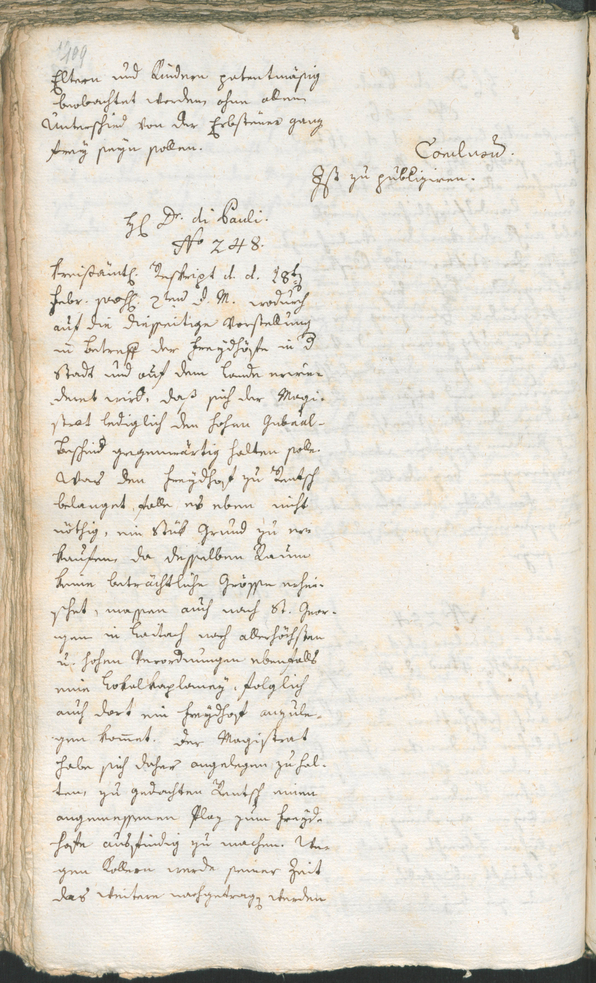 Eltern und Kindern patentmäßig
beobachtet werden, ohne allem
Unterschied von der Erbsteuer ganz
frey seyn sollen.
Conclusum.
Ist zu publiziren.
H. Dr. di Pauli.
No 248.
Kreisämtl. Reskript d. d. 28ten
Febr. 2ten d. M. wodurch
auf die diesseitige Vorstellung
in Betreff der Freydhöfe in d
Stadt und auf dem Lande erwie-
dert wird, daß sich der Magi-
strat lediglich den hohen Gubal-
Bescheid gegenwärtig halten solle.
Was den Freydhof zu Rentsch
belanget, falle es eben nicht
nöthig, ein Stük Grund zu er-
kaufen, da desselben Raum
keine beträchtliche Grösse erhei-
schet, massen auch nach St. Geor-
gen in nach allerhöchsten
u. hohen Verordnungen ebenfalls
eine Lokalkaplaney, folglich
auch dort ein Freydhof anzule-
gen kommet. Der Magistrat
habe sich daher angelegen zu hal-
ten, zu gedachten Rentsch einen
angemessenen Plaz zum Freyd-
hofe ausfindig zu machen. We-
gen Kollern werde seiner Zeit
das weitere nachgetragen werden